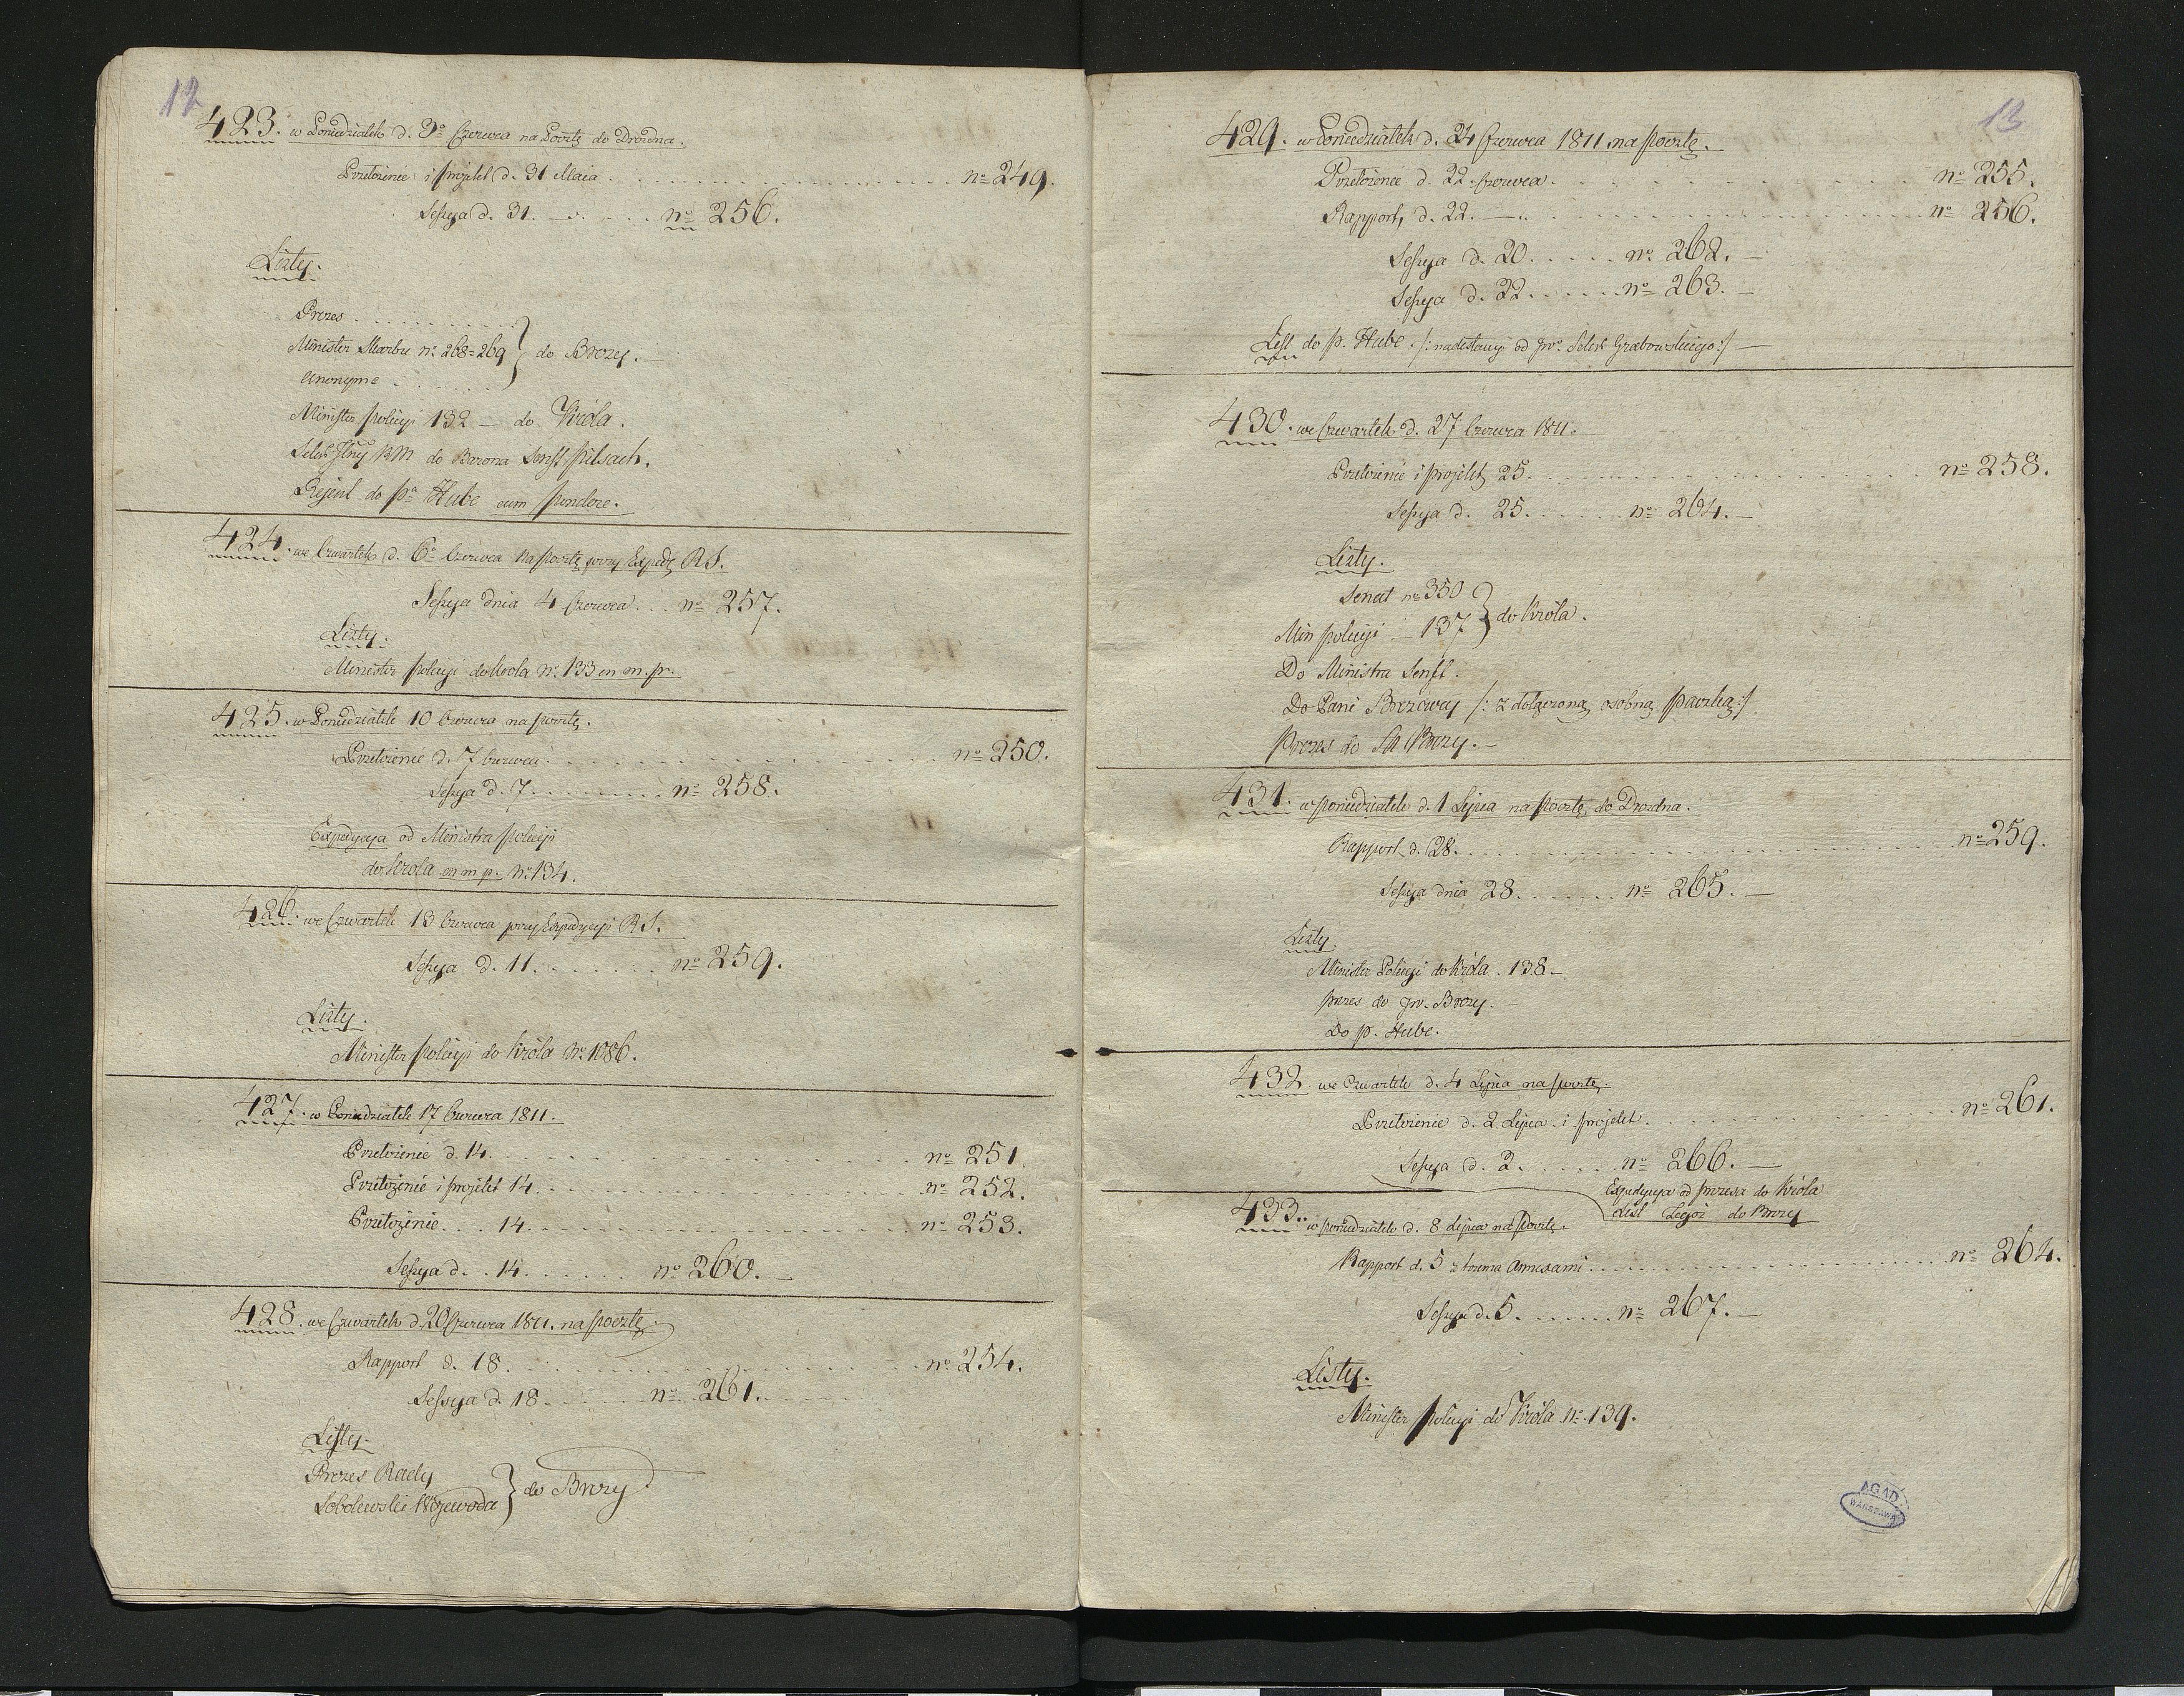 12
423. w Poniedziałek d. 3º Czerwca na Pocztę do Drezna.
Przełożenie i projekt d. 31 Maia . . . . . nº 249.
Sessya d. 31. — . . . nº 256.
Listy.
Prezes . . . . .
Minister Skarbu nº 268=269 } do Brezy. —
Anonyme . . . . .
Minister policyi 132 — do Króla.
Sekr Jlny RM do Barona Senft Pilsach.
Rejent do pª Hube cum pondere.
424. we Czwartek d. 6º Czerwca na pocztę przy Exped. R S.
Sessya dnia 4 Czerwca . . . nº 257.
Listy.
Minister policyi do Krola nº 133 en m. pr.
425. w Poniedziałek 10 Czerwca na pocztę.
Przełożenie d. 7 Czerwca . . . . . nº 250.
Sessya d. 7 . . . . . nº 258.
Expedycya od Ministra policyi
do Krola en m p. nº 134.
426. we Czwartek 13 Czerwca przy Expedycyi R S.
Sessya d. 11. . . . . . nº 259.
Listy.
Minister policyi do Króla nº 1086.
427. w Poniedziałek 17 Czerwca 1811.
Przełożenie d. 14. . . . . nº 251.
Przełożenie i projekt 14. . . . . nº 252.
Przełożenie . . . 14. . . . . nº 253.
Sessya d. . 14. . . . . nº 260. —
428. we Czwartek d. 20 Czerwca 1811. na pocztę.
Rapport d. 18. . . . . nº 254.
Sessya d. 18 . . . . nº 261.
Listy.
Prezes Rady
Sobolewski Wojewoda } do Brezy
13
429. w Poniedziałek d. 24 Czerwca 1811 na pocztę. —
Przełożenie d. 22. Czerwca. . . . . nº 255.
Rapport, d. 22. — . . . . . nº 256.
Sessya d. 20. . . . . nº 262. —
Sessya d. 22. . . . . nº 263. —
List do p. Hube. /: nadesłany od Jwº Sekr Grabowskiego :/ —
430. we Czwartek d. 27 Czerwca 1811.
Przełożenie i projekt 25. . . . . nº 258.
Sessya d. 25. . . . . nº 264. —
Listy.
Senat nº 350
Min policyi — 137 } do Króla.
Do Ministra Senft.
Do Pani Brezowey /: z dołączoną osobną paczką :/
Prezes do Brezy. —
431. w poniedziałek d. 1 Lipca na pocztę, do Drezdna.
Rapport d. 28. . . . . nº 259.
Sessya dnia 28. . . . . nº 265. —
Listy.
Minister Policyi do Króla. 138 —
prezes do Jw. Brezy. —
Do p. Hube.
432. we Czwartek d. 4 Lipca na pocztę.
Przełożenie d. 2 Lipca i projekt . . . . . nº 261.
Sessya d. 2. . . . . nº 266. —
Expedycya od prezesa do Króla
List Tegoż do Brezy
433. w poniedziałek d. 8 Lipca na Pocztę.
Rapport d. 5 z trzema Annexami . . . . . nº 264.
Sessya d. 5. . . . . nº 267. —
Listy.
Minister policyi do Króla nº 139.
AGAD
WARSZAWA